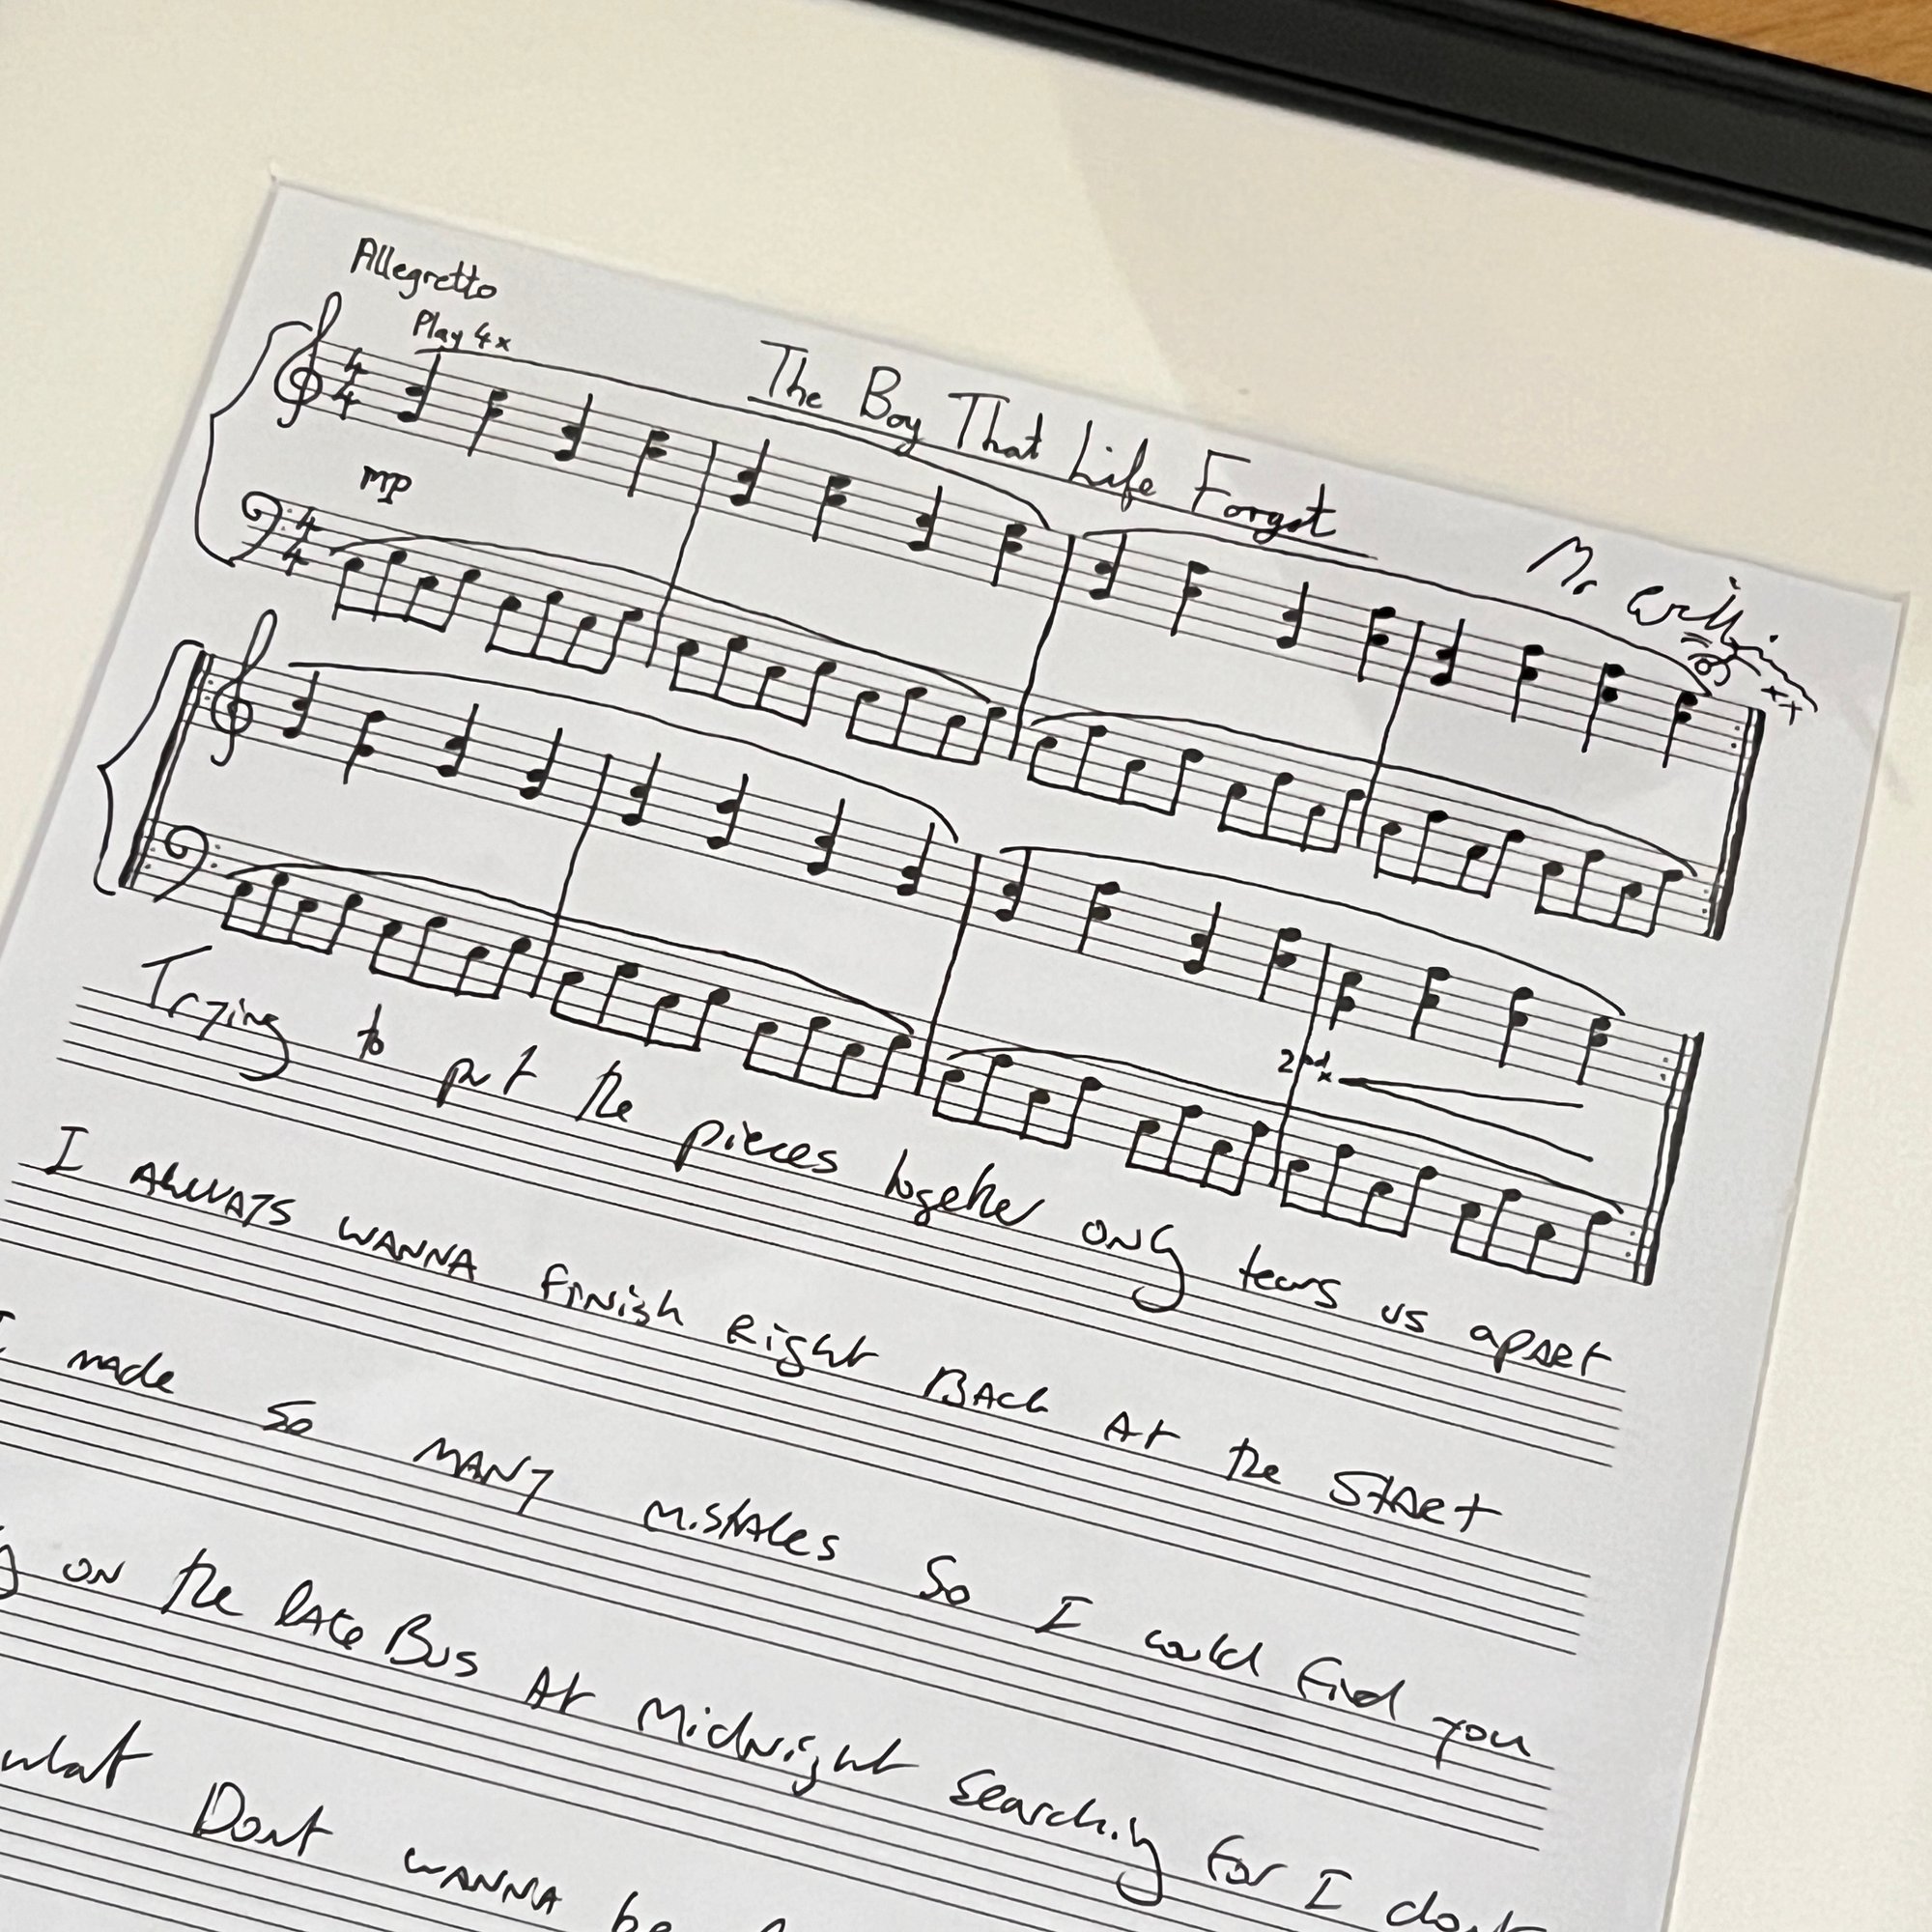 Allegretto
Play 4x
The Boy That Life Forgot
4
4
mp
4
4
Mr
2nd x
Trying to put the pieces together only tears us apart
I Always wanna finish Right Back At the Start
I made so many mistakes So I could find you
on the late Bus At Midnight searching for I dont
what Dont wanna be